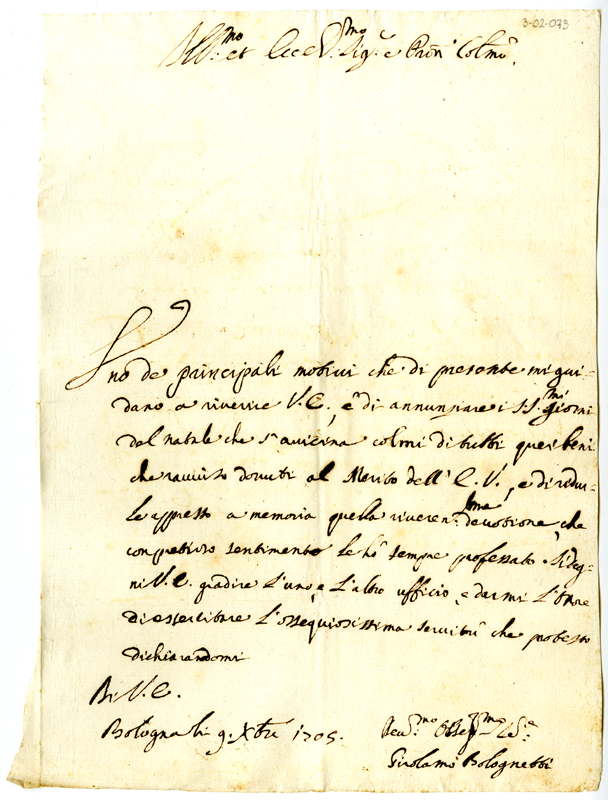 3-02-073
Ill.mo et Ecc.mo Sig.r e Pron Colmo.
Uno de principali motiui che di presente mi gui-
dano a riuerire V.E., è di annunziare i SS.mi giorni
del natale che s'auicina colmi di tutti quei beni
che rauuiso douuti al Merito dell'E.V., e di ridur-
le appresso a memoria quella riueren.ma deuotione, che
con pretiuso sentimento le hò sempre professato. Si deg-
ni V.E. gradire l'uno, e l'altro ufficio, e darmi l'Onore
di essercitare l'ossequiosissima seruitù che professo
dichiarandomi
Di V.E.
Bologna li 9. Xbre 1705.
Deu.mo Obblig.mo Se.e
Girolamo Bolognetti